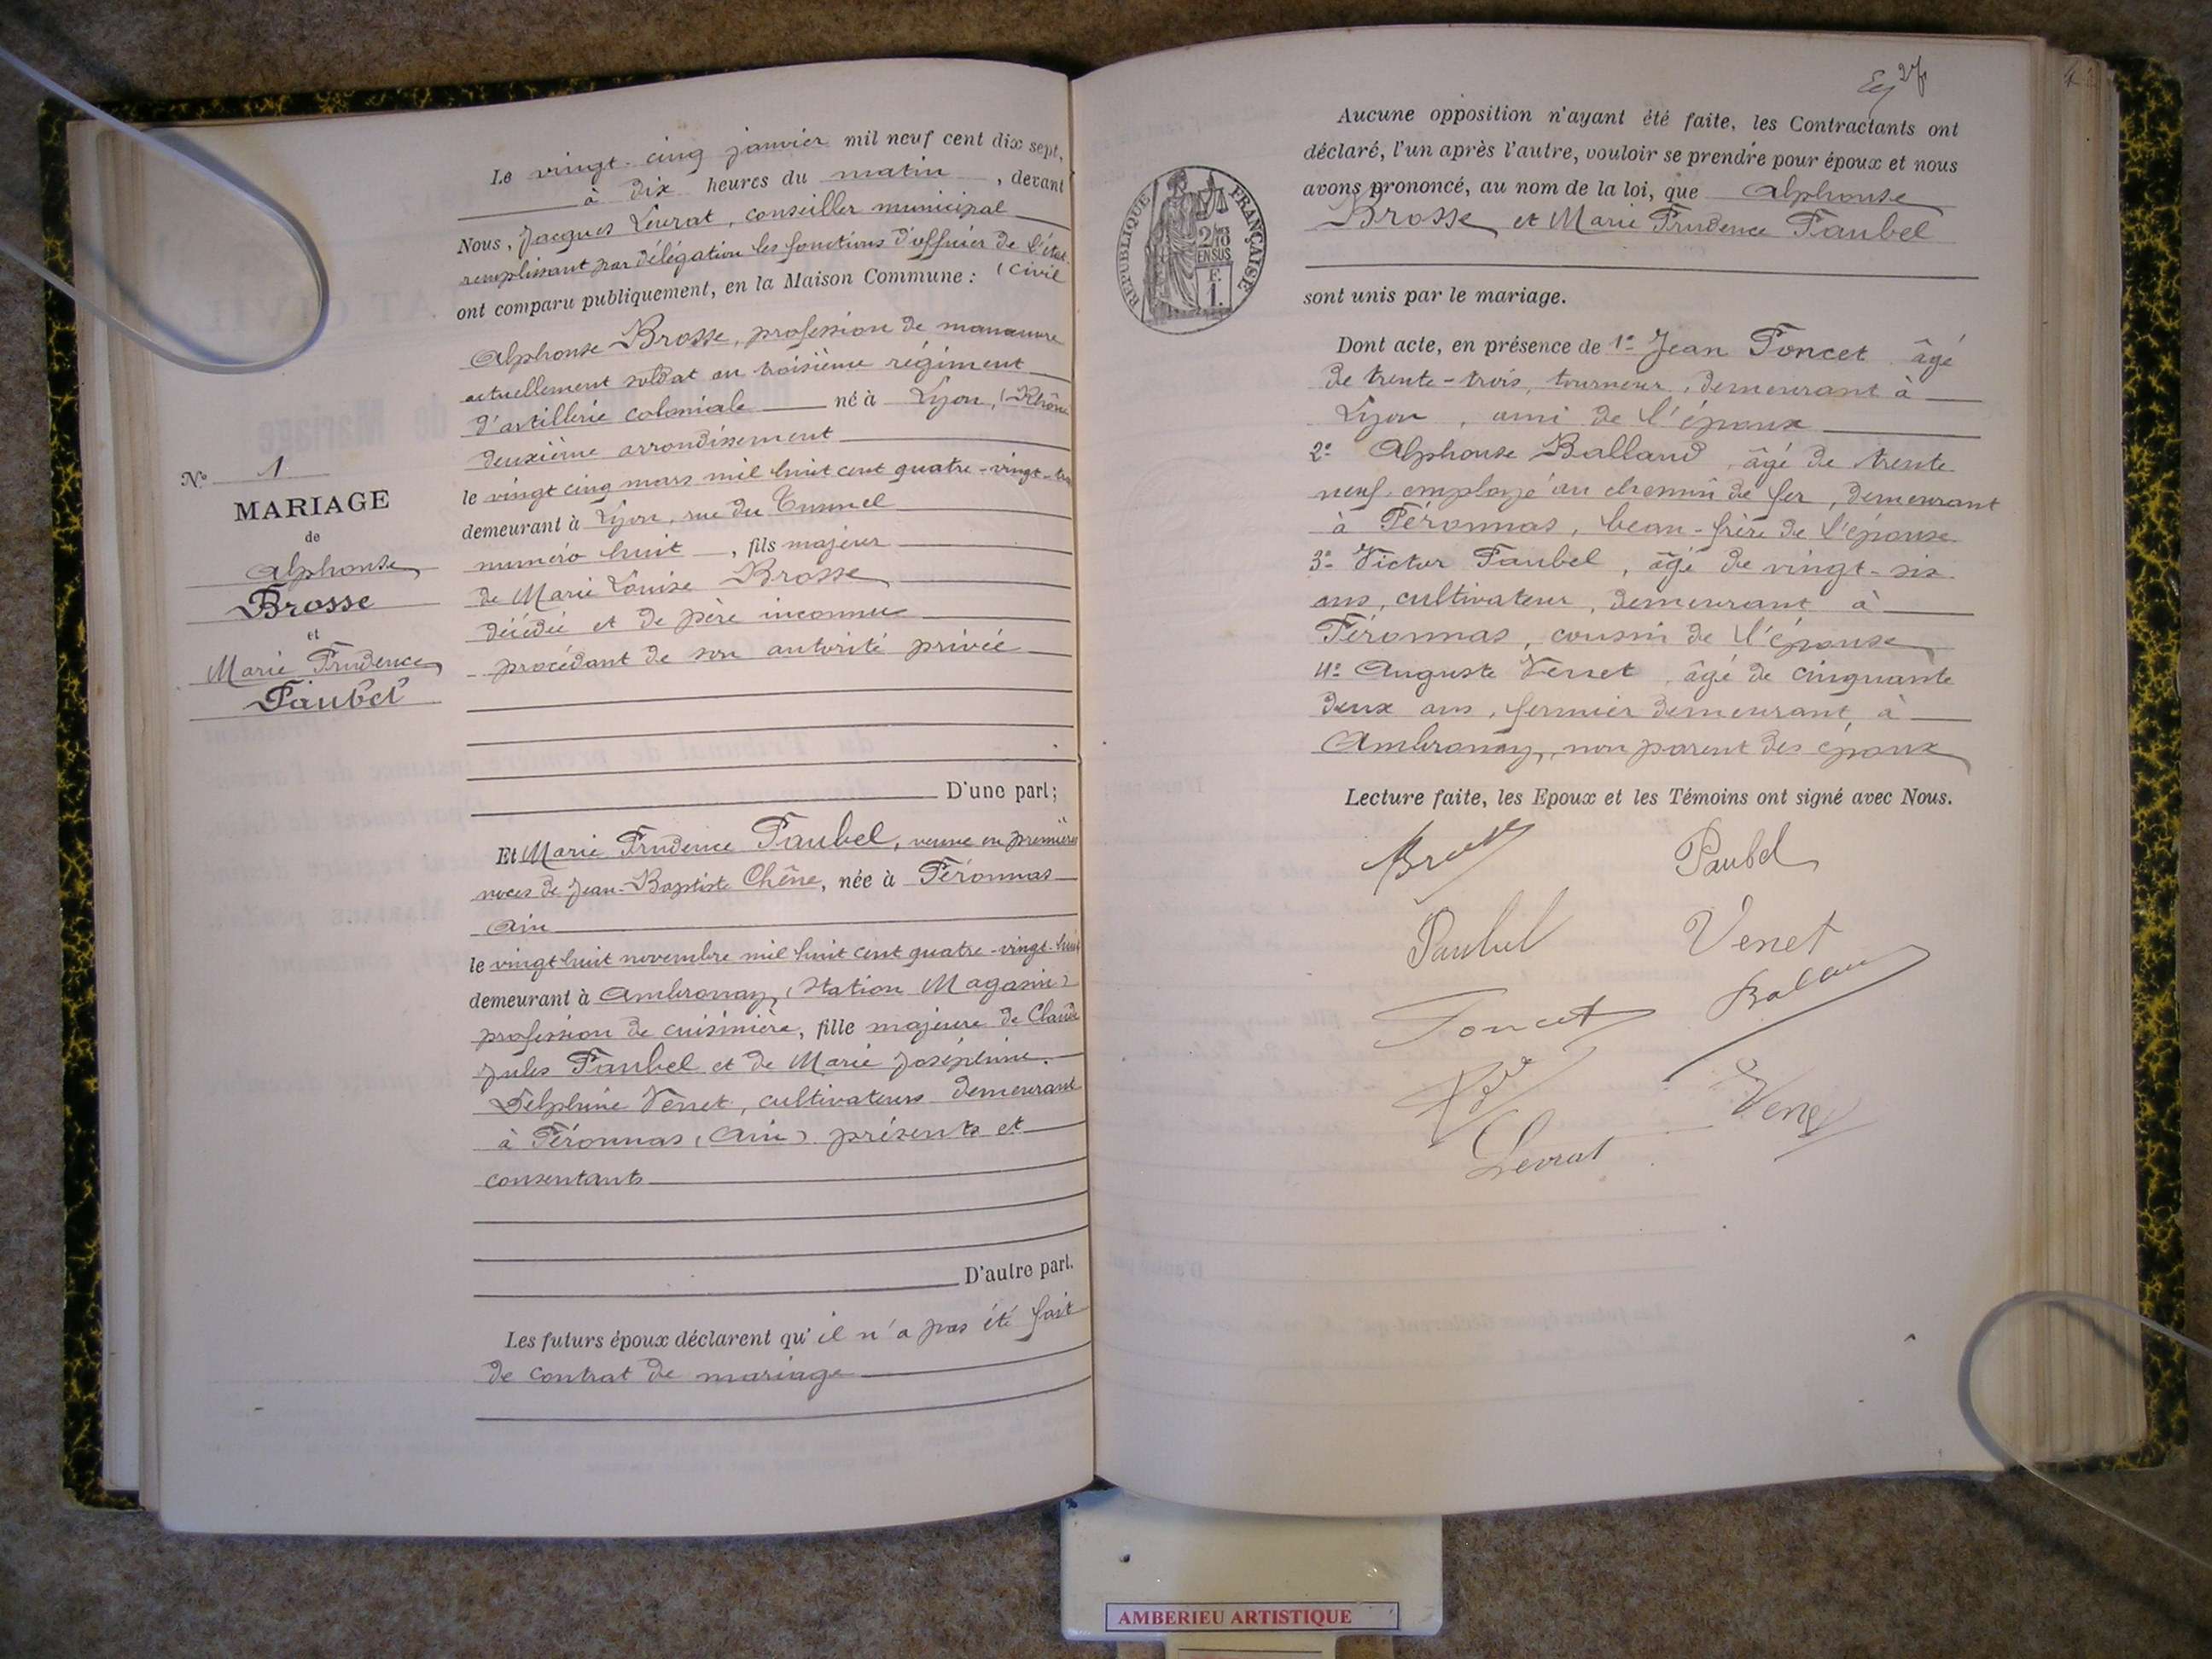 Le vingt-cinq janvier mil neuf cent dix sept,
à dix heures du matin, devant
Nous, Jacques Levrat, conseiller municipal
remplissant par délégation les fonctions d'officier de l'état
(civil
ont comparu publiquement, en la Maison Commune :
Alphonse Brosse, profession de manœuvre
actuellement soldat au troisième régiment
d'artillerie coloniale né à Lyon, (Rhône
deuxième arrondissement
le vingt cinq mars mil huit cent quatre-vingt-
demeurant à Lyon, rue du Tunnel
numéro huit, fils majeur
de Marie Louise Brosse
décédée et de père inconnu
procédant de son autorité privée
D'une part;
N° 1
MARIAGE
de
Alphonse
Brosse
et
Marie Prudence
Paubel
Et Marie Prudence Paubel, veuve en premières
noces de Jean-Baptiste Chêne, née à Péronnas
Ain
le vingt huit novembre mil huit cent quatre-vingt-huit
demeurant à Ambronay, (Station Magasin)
profession de cuisinière, fille majeure de Claude
Jules Paubel et de Marie Joséphine
Delphine Venet, cultivateurs demeurant
à Péronnas (Ain) présents et
consentants
D'autre part.
Les futurs époux déclarent qu'il n'a pas été fait
de contrat de mariage
2
Aucune opposition n'ayant été faite, les Contractants ont
déclaré, l'un après l'autre, vouloir se prendre pour époux et nous
avons prononcé, au nom de la loi, que Alphonse
Brosse et Marie Prudence Paubel
sont unis par le mariage.
RÉPUBLIQUE FRANÇAISE
2/10
EN SUS
F.
1.
Dont acte, en présence de 1° Jean Poncet âgé
de trente-trois, tourneur, demeurant à
Lyon, ami de l'époux
2° Alphonse Balland, âgé de trente
neuf, employé au chemin de fer, demeurant
à Péronnas, beau-frère de l'épouse
3° Victor Paubel, âgé de vingt-six
ans, cultivateur, demeurant à
Péronnas, cousin de l'épouse
4° Auguste Venet, âgé de cinquante
deux ans, fermier demeurant à
Ambronay, non parent des époux
Lecture faite, les Epoux et les Témoins ont signé avec Nous.
Paubel
Paubel Venet
Poncet
Venet
Levrat
AMBERIEU ARTISTIQUE